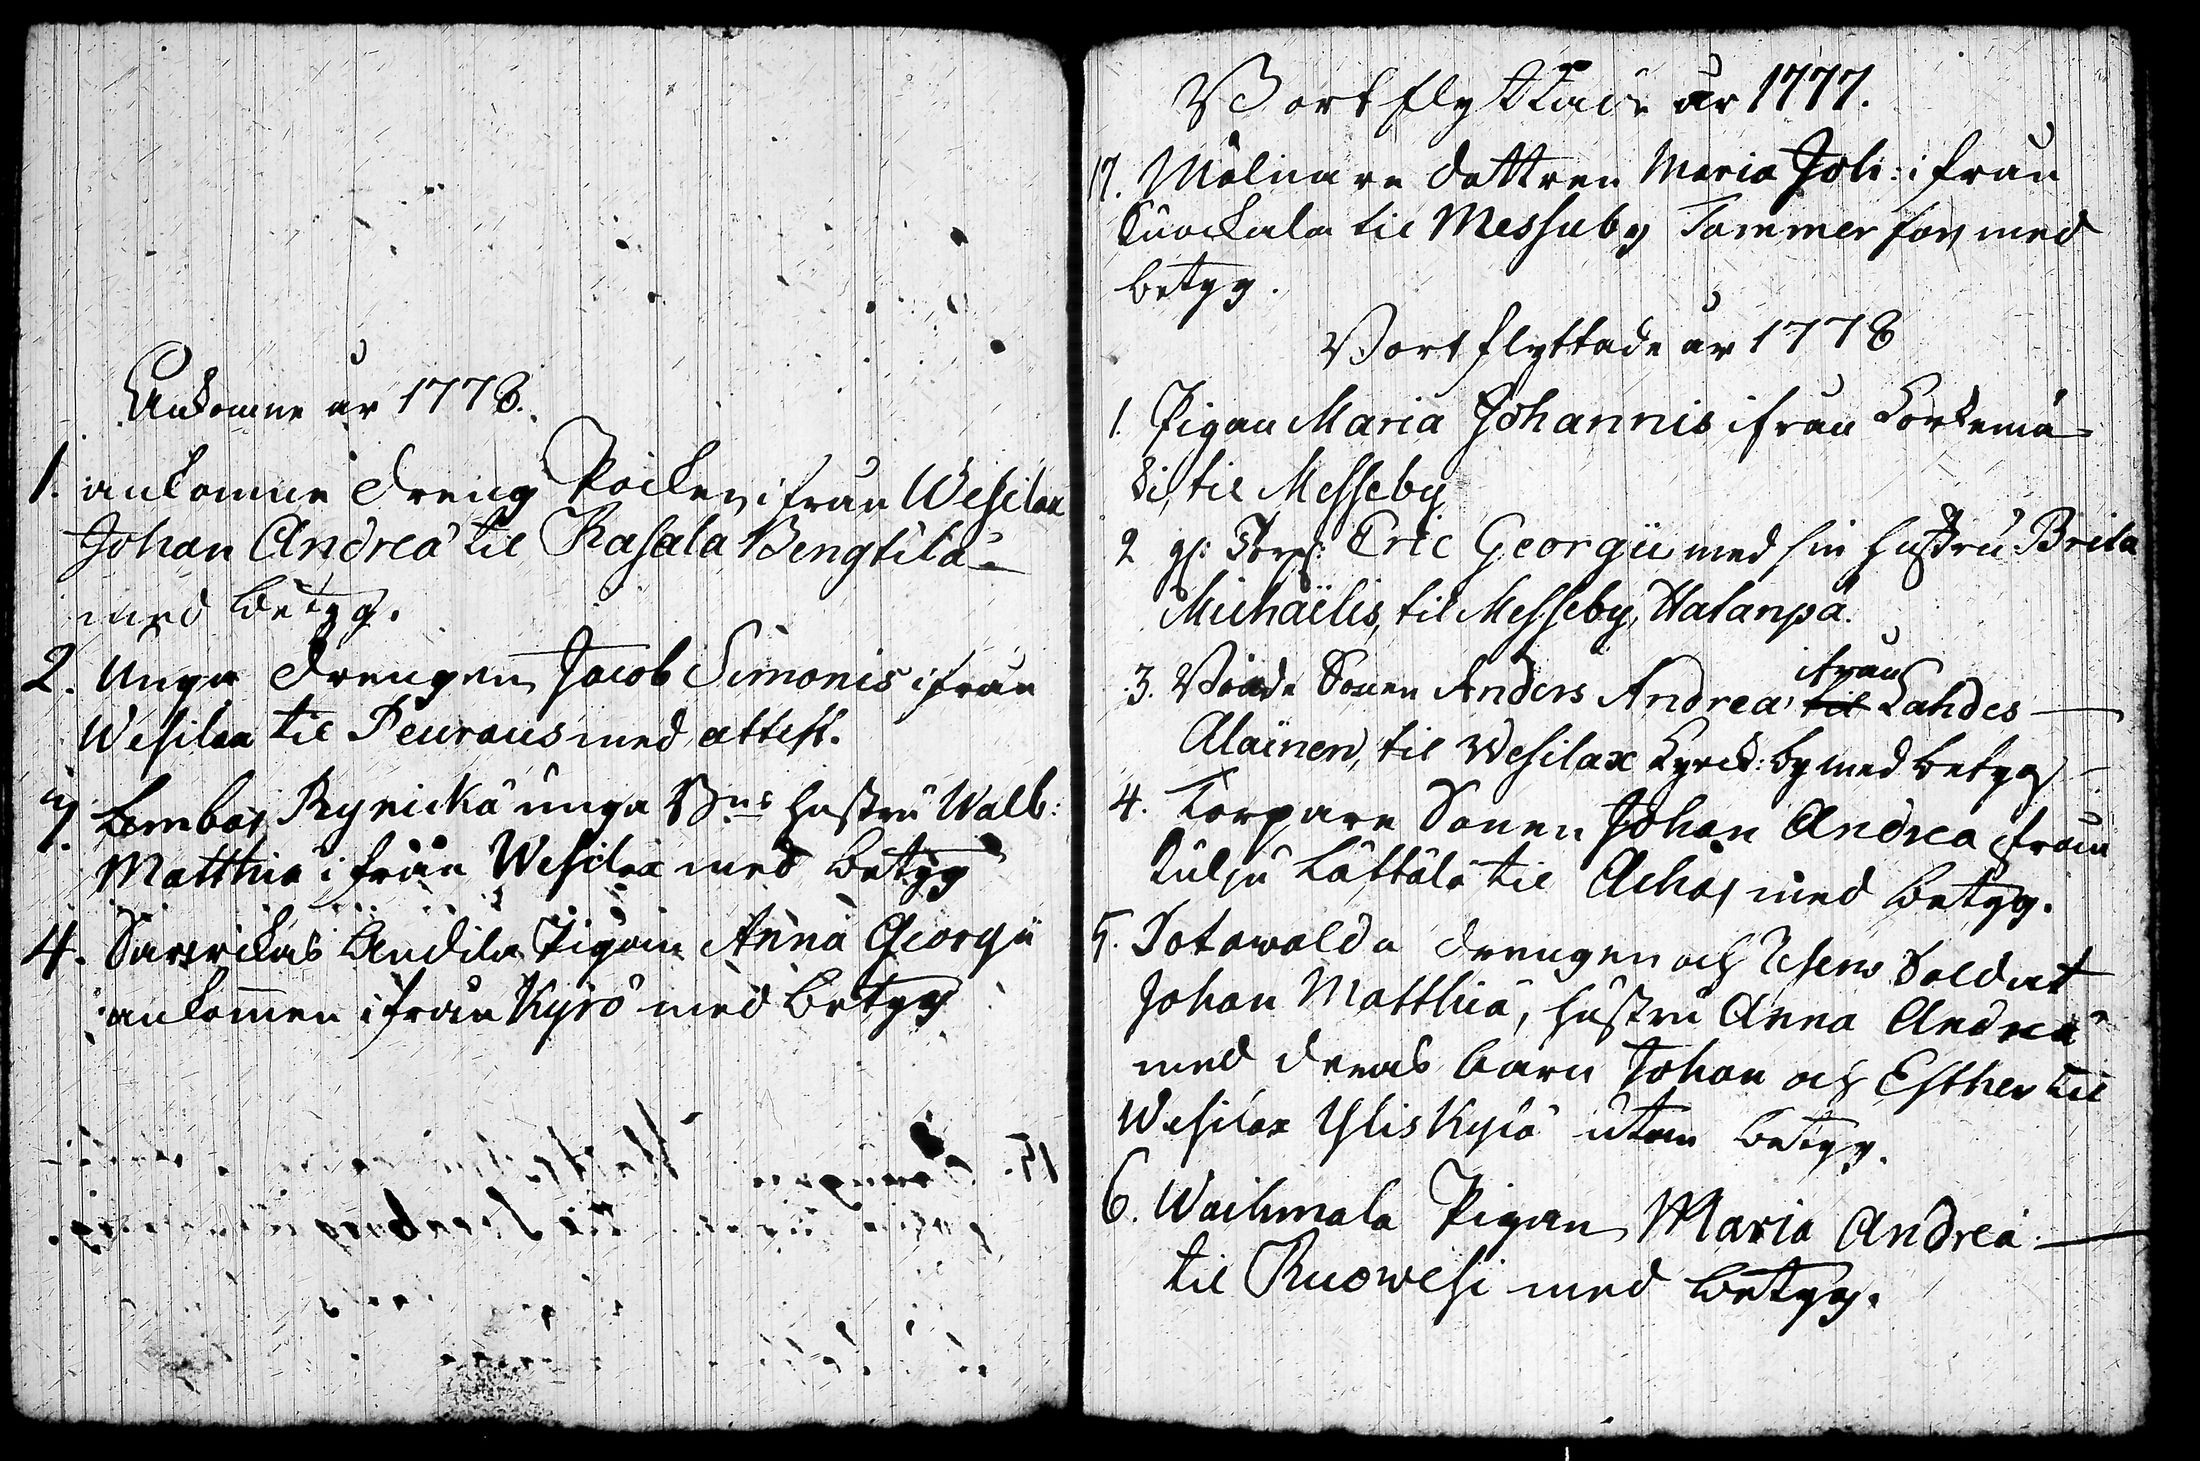 Ankomne år 1778.
1. ankomne Dreng Poiken, ifrån Wesilax
Johan Andreæ til Rasala Bengtilä
med betyg.
2. Unga Drengen Jacob Simonis ifrån
Wesilax til Peuraus med attest.
3. Lembois Rynickä unga B:ns hustru Walb:
Matthiæ ifrån Wesilax med betyg
4. Anttila Pigan Anna Georgii
ankommen ifrån Kyrö med betyg
Bortflyttade år 1777.
17. Mölnare dottren Maria Joh: ifrån
Kuockala til Messuby Tammerfors med
betyg.
Bortflyttade år 1778
1. Pigan Maria Johannis ifrån Korkemä
ki, til Messeby
2 gl: Torp: Eric Georgii med sin hustru Brita
Michaëlis, til Messeby, Hatanpä.
3. Bonde Sonen Anders Andreæ ifrån
til Lahdes
Alainen, til Wesilax Kyrck: by med betyg
4. Torpare Sonen Johan Andreæ ifrån
Kulju Lättälä til Achas med betyg.
5. Totawalda drengen och Reserv Soldat
Johan Matthiæ, hustru Anna Andreæ
med deras barn Johan och Esther til
Wesilax Yliskylä utan betyg.
6. Waihmala Pigan Maria Andreæ
til Ruowesi med betyg.